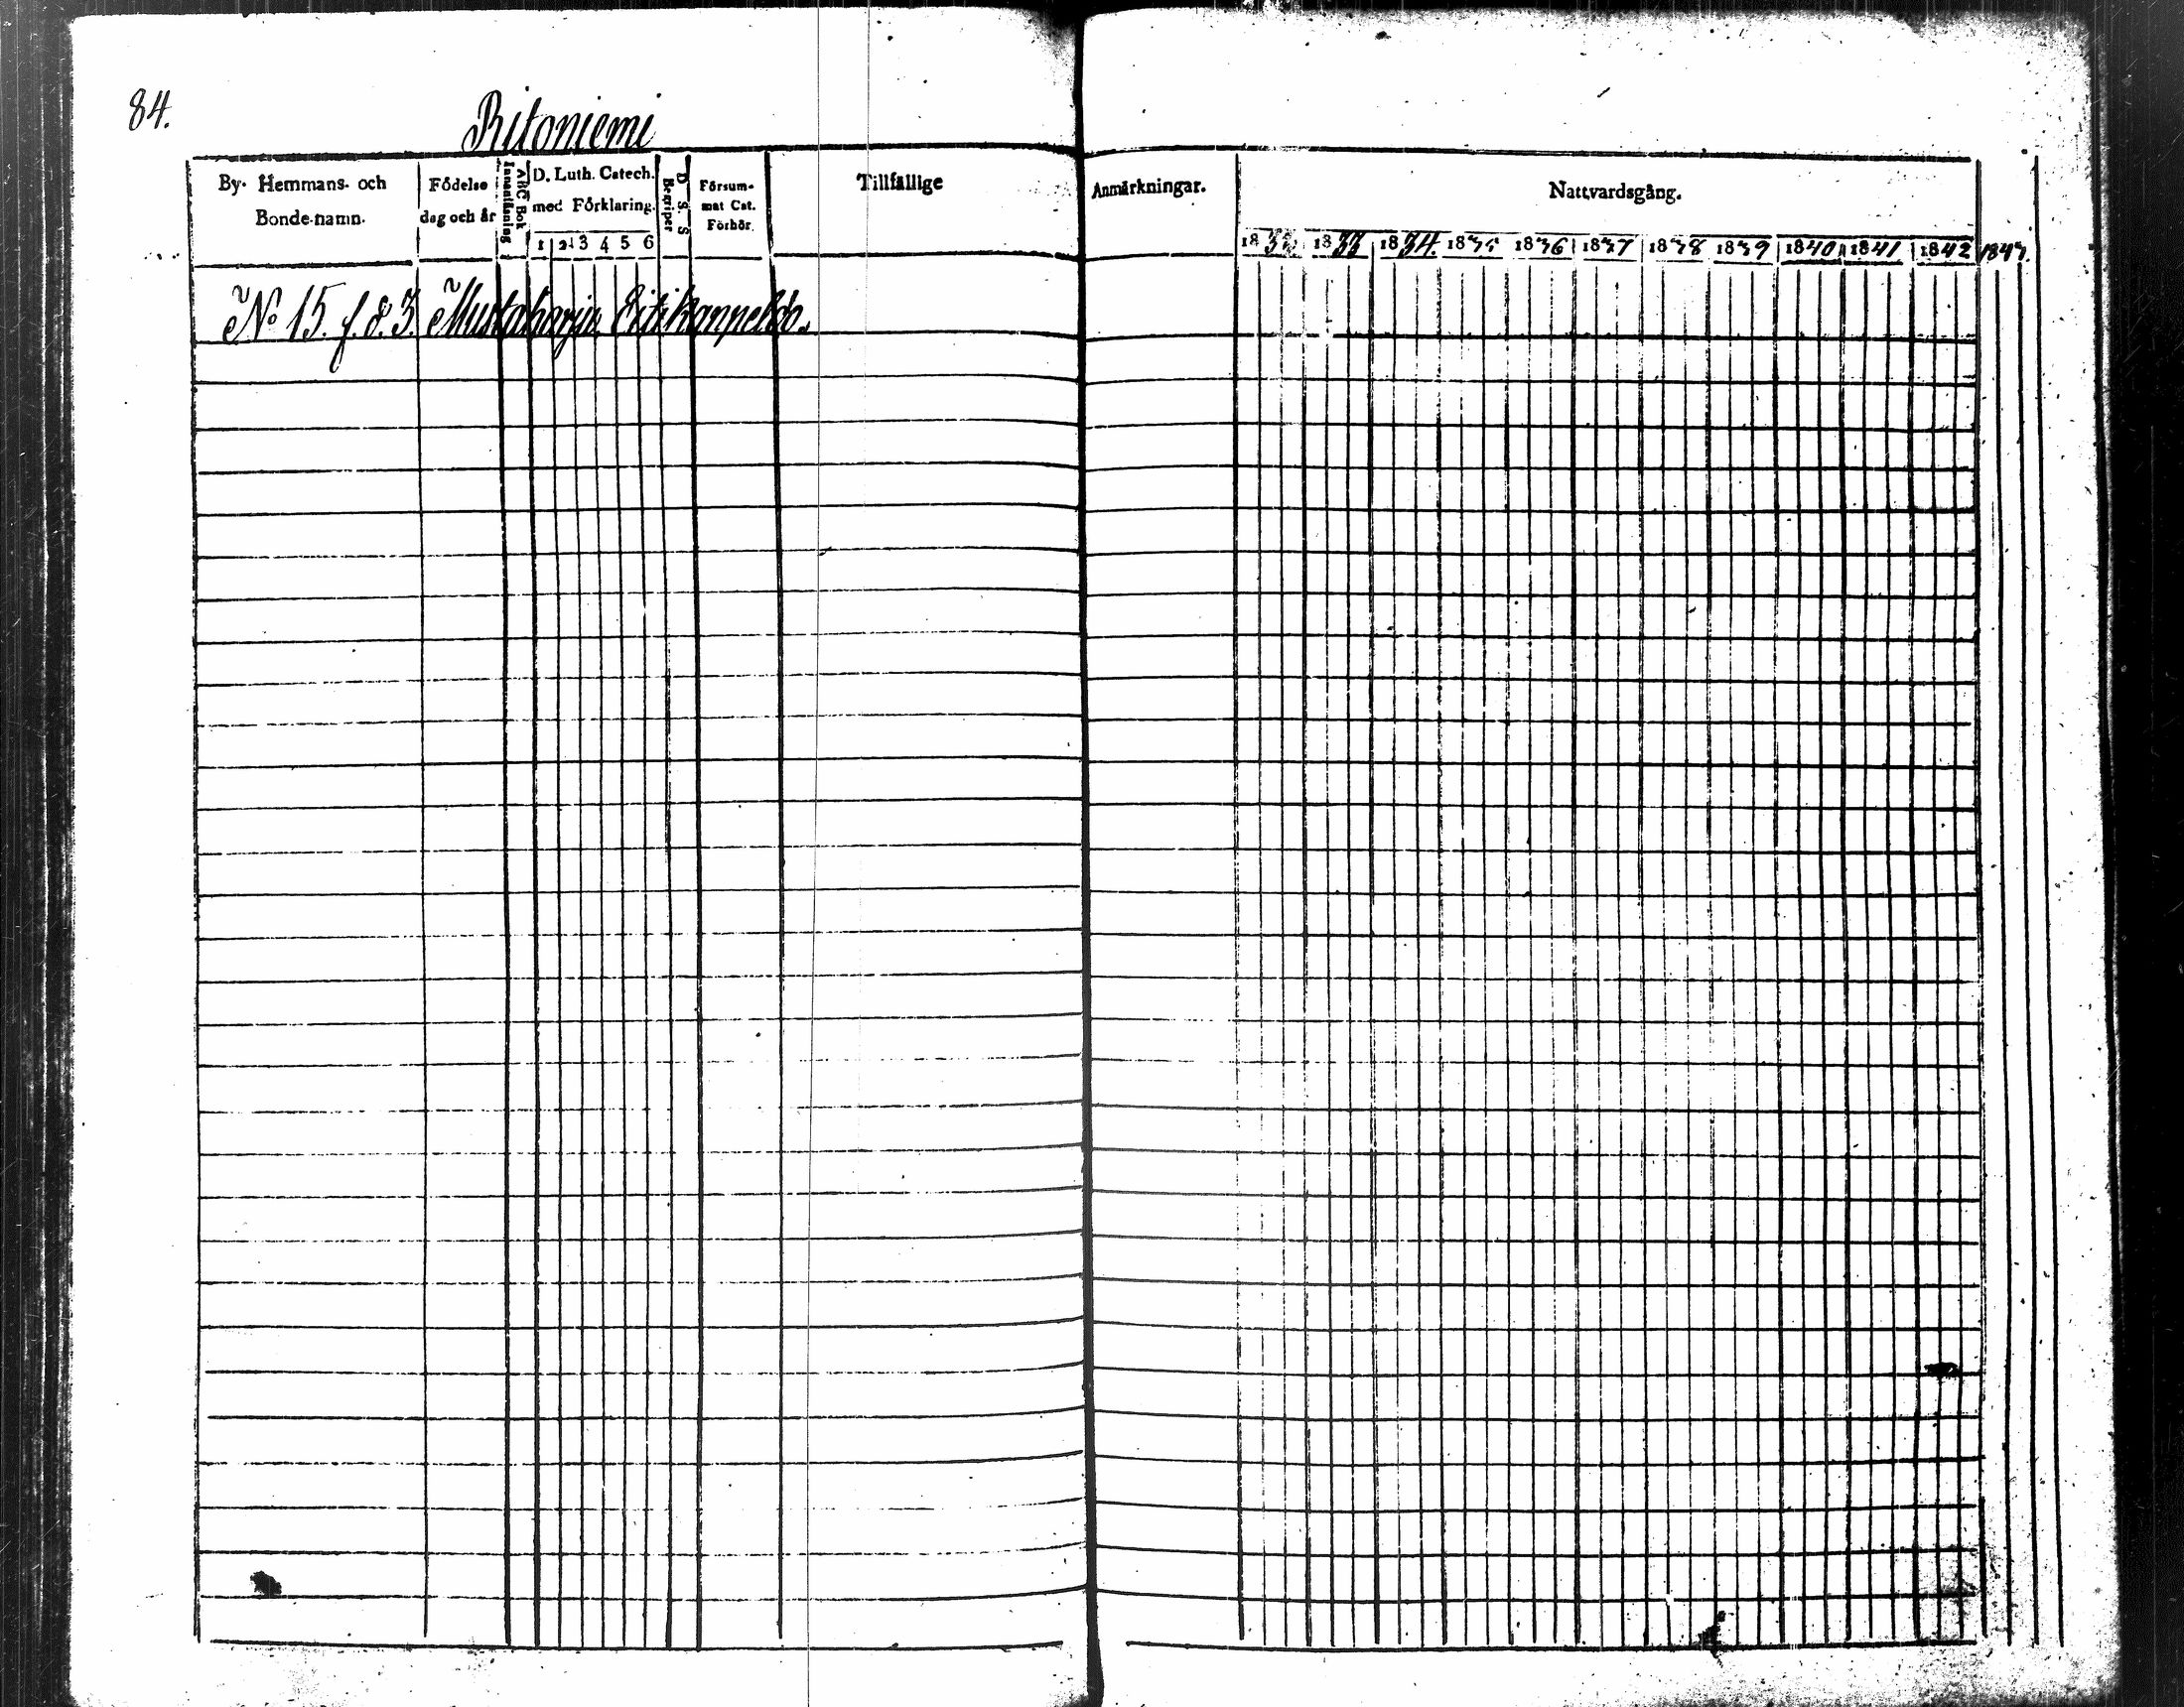 84.
Ritoniemi
By- Hemmans- och Bonde-namn.
Födelse dag och år
Innanläsning
ABC Bok
D. Luth. Catech. med Förklaring.
1 2 3 4 5 6
Begriper
D. S. S
Försum-mat Cat. Förhör.
Tillfällige Anmärkningar.
Nattvardsgång.
1832 1833 1834. 1835 1836 1837 1838 1839 1840 1841 1842 1843.
No 15. f. d. 3. Mustaharju